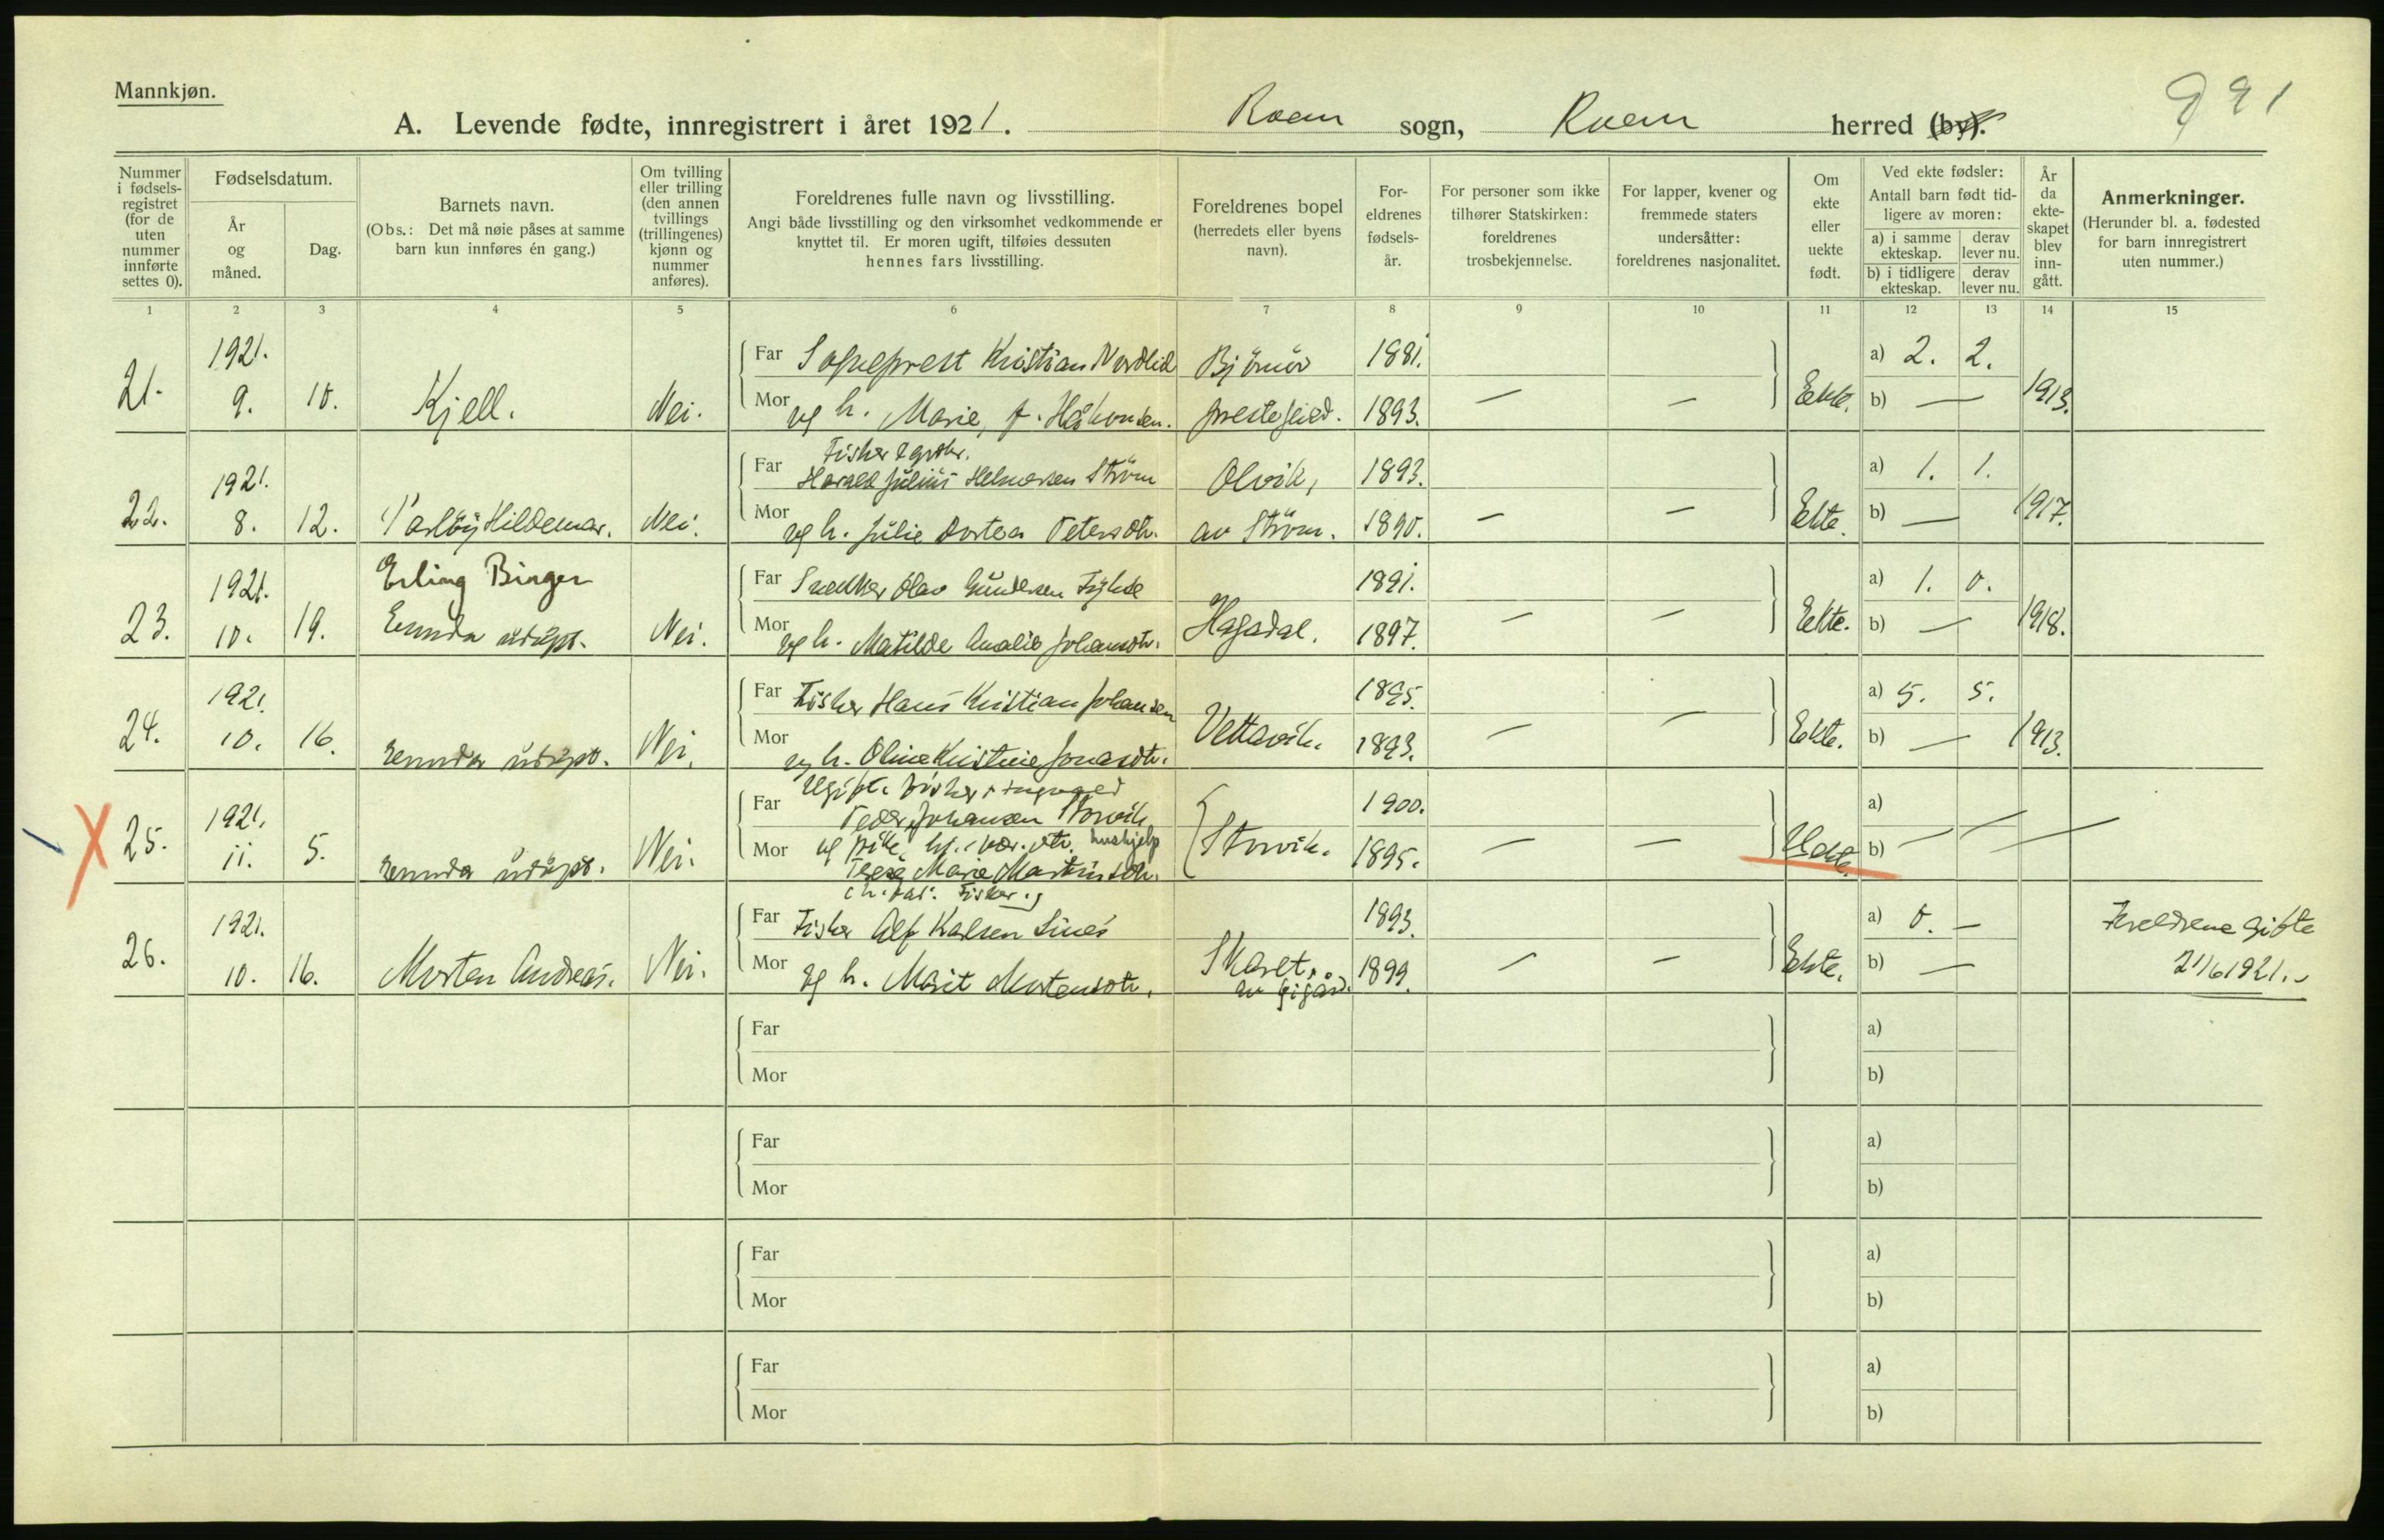 Mannkjøn.
991
A. Levende fødte, innregistrert i året 1921. Roan sogn, Roan herred (by).
Nummer i fødsels-registret (for de uten nummer innførte settes 0).
Fødselsdatum.
År og måned.
Dag.
Barnets navn.
(Obs.: Det må nøie påses at samme barn kun innføres én gang.)
Om tvilling eller trilling (den annen tvillings (trillingenes) kjønn og nummer anføres).
Foreldrenes fulle navn og livsstilling.
Angi både livsstilling og den virksomhet vedkommende er knyttet til. Er moren ugift, tilføies dessuten hennes fars livsstilling.
Foreldrenes bopel (herredets eller byens navn).
For-eldrenes fødsels-år.
For personer som ikke tilhører Statskirken: foreldrenes trosbekjennelse.
For lapper, kvener og fremmede staters undersåtter: foreldrenes nasjonalitet.
Om ekte eller uekte født.
Ved ekte fødsler:
Antall barn født tid-ligere av moren:
a) i samme ekteskap. derav lever nu.
b) i tidligere ekteskap. derav lever nu.
År da ekte-skapet blev inn-gått.
Anmerkninger.
(Herunder bl. a. fødested for barn innregistrert uten nummer.)
1 2 3 4 5 6 7 8 9 10 11 12 13 14 15
21. 1921. 9. 10. Kjell. Nei.
Far Sogneprest Kristian Nordlid Björnör 1881. a) 2. 2.
Mor og h. Marie, f. Håkonsen. prestegjeld. 1893. — — Ekte. b) — 1913.
22. 1921. 8. 12. Hildemar. Nei.
Far Fisker
Harald Julius Helmersen Ström Olvik, 1893. a) 1. 1.
Mor og h. Julie Dortea Petersdtr. av Ström. 1890. — — Ekte. b) — 1917.
23. 1921. 10. 19. Erling Birger
Ennda udöpt. Nei.
Far Snedker Olav Gundersen 1891. a) 1. 0.
Mor og h. Matilde Analie Johansdtr. Hagadal. 1897. — — Ekte. b) — 1918.
24. 1921. 10. 16. Ennda udöpt. Nei.
Far Fisker Hans Kristian Johansen Vettavik. 1895. a) 5. 5.
Mor og h. Oline Kristine Jonasdtr. 1893. — — Ekte. b) — 1913.
25. 1921. 11. 5. Ennda udöpt. Nei.
Far Ugift. fisker + ungkarl
Peder Johansen Storvik Storvik. 1900. a)
Mor og pike, hushjelp
Marie Martinsdtr. 1895. — — Uekte. b) — — —
(h. far: Fisker.)
26. 1921. 10. 16. Morten Andreas. Nei.
Far Fisker Alf Karlsen Sines 1893. a) 0. — Foreldrene gifte
Mor og h. Marit Mortensdtr. Skaret, 1899. — — Ekte. b) — 21/6 1921.
Far a)
Mor b)
Far a)
Mor b)
Far a)
Mor b)
Far a)
Mor b)